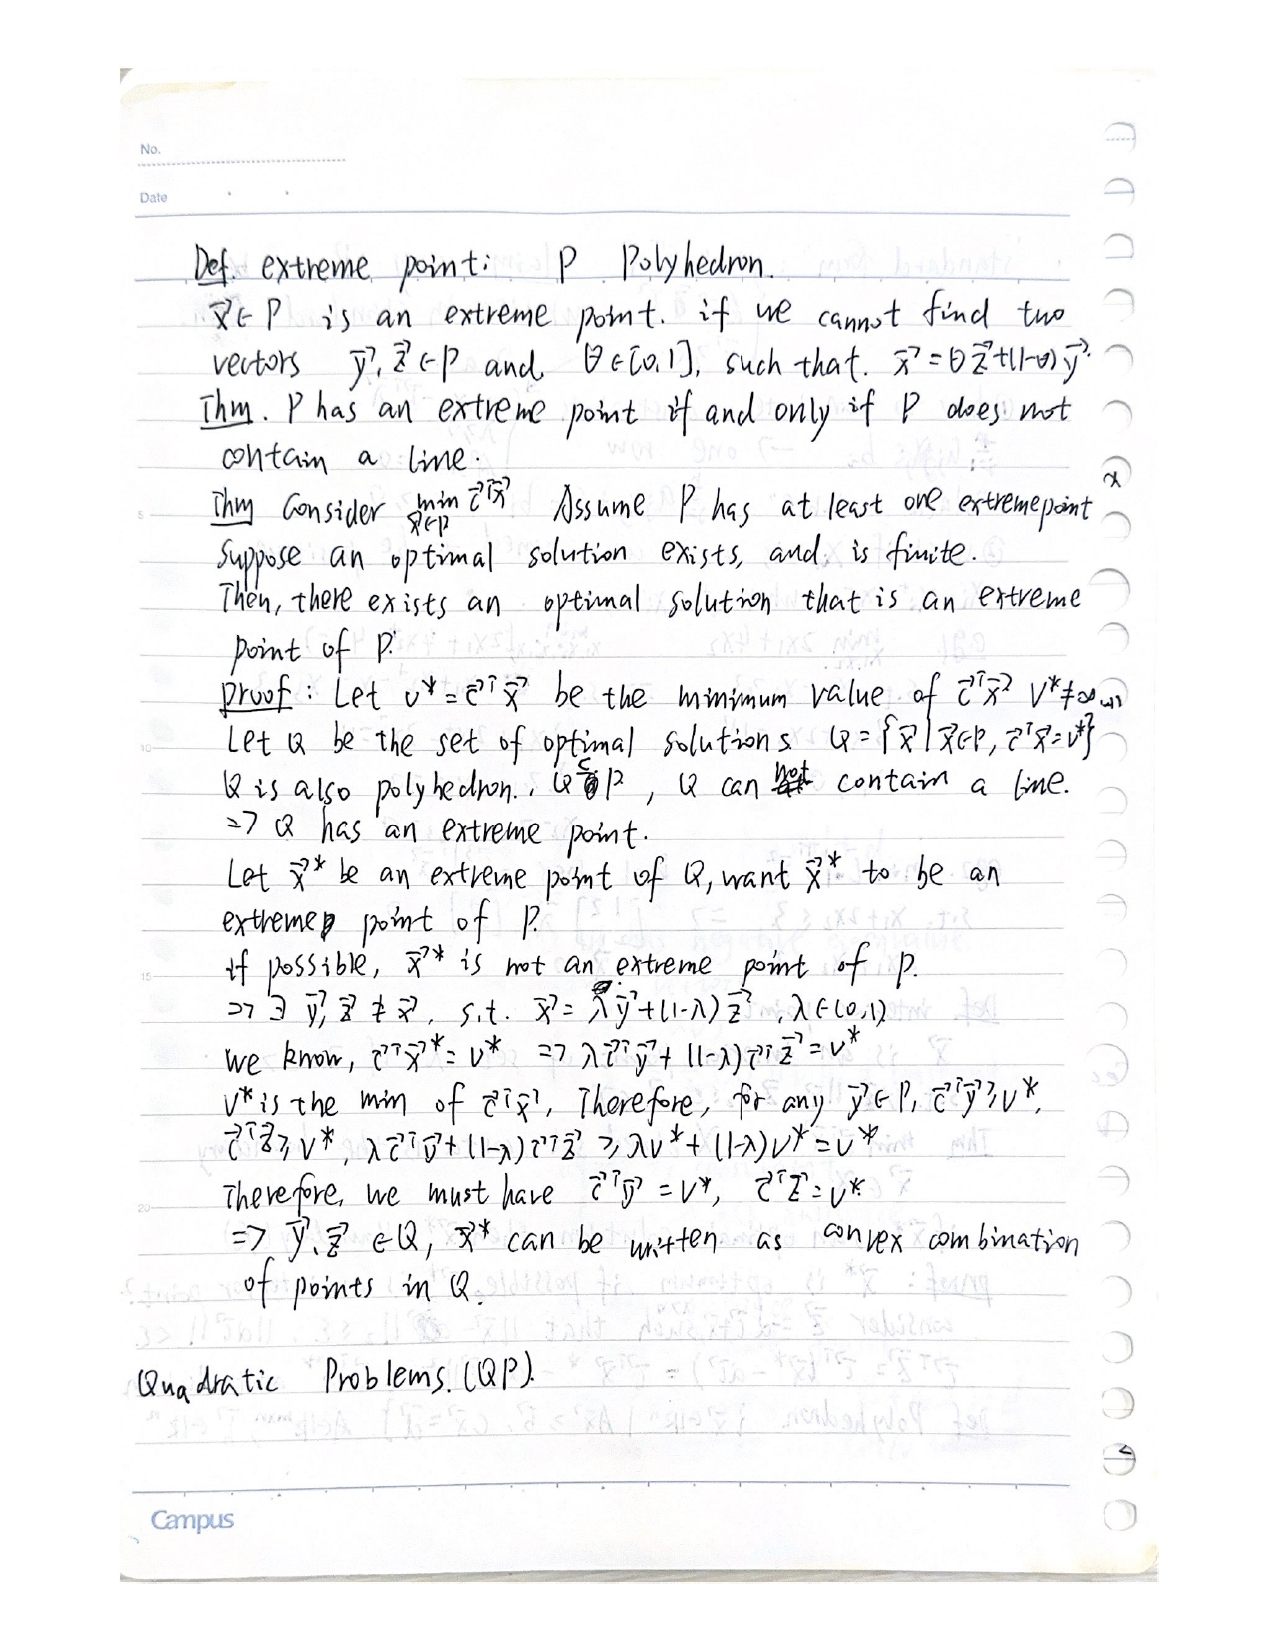 No.
Date
Def. extreme point: P Polyhedron.
x⃗∈P is an extreme point. if we cannot find two
vectors y⃗, z⃗∈P and θ∈[0,1], such that. x⃗=θz⃗+(1-θ)y⃗.
Thm. P has an extreme point if and only if P does not
contain a line.
Thm Consider min x⃗∈P c⃗ᵀx⃗ Assume P has at least one extreme point
Suppose an optimal solution exists, and is finite.
Then, there exists an optimal solution that is an extreme
point of P.
proof: Let v*=c⃗ᵀx⃗ be the minimum value of c⃗ᵀx⃗ v*≠∞
Let Q be the set of optimal solutions Q={x⃗|x⃗∈P, c⃗ᵀx⃗=v*}
Q is also polyhedron. Q⊂P, Q can not contain a line.
=> Q has an extreme point.
Let x⃗* be an extreme point of Q, want x⃗* to be an
extreme point of P.
if possible, x⃗* is not an extreme point of P.
=> ∃ y⃗, z⃗ ≠ x⃗, s.t. x⃗=λy⃗+(1-λ)z⃗, λ∈(0,1)
we know, c⃗ᵀx⃗*=v* => λc⃗ᵀy⃗+(1-λ)c⃗ᵀz⃗=v*
v* is the min of c⃗ᵀx⃗, Therefore, for any y⃗∈P, c⃗ᵀy⃗≥v*,
c⃗ᵀz⃗≥v*, λc⃗ᵀy⃗+(1-λ)c⃗ᵀz⃗≥λv*+(1-λ)v*=v*
Therefore, we must have c⃗ᵀy⃗=v*, c⃗ᵀz⃗=v*
=> y⃗, z⃗ ∈Q, x⃗* can be written as convex combination
of points in Q.
Quadratic Problems. (QP).
Campus